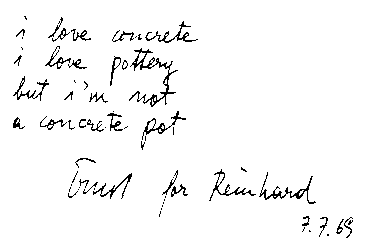 i love concrete
i love pottery
but i'm not
a concrete pot
Ernst for Reinhard
7.7.69